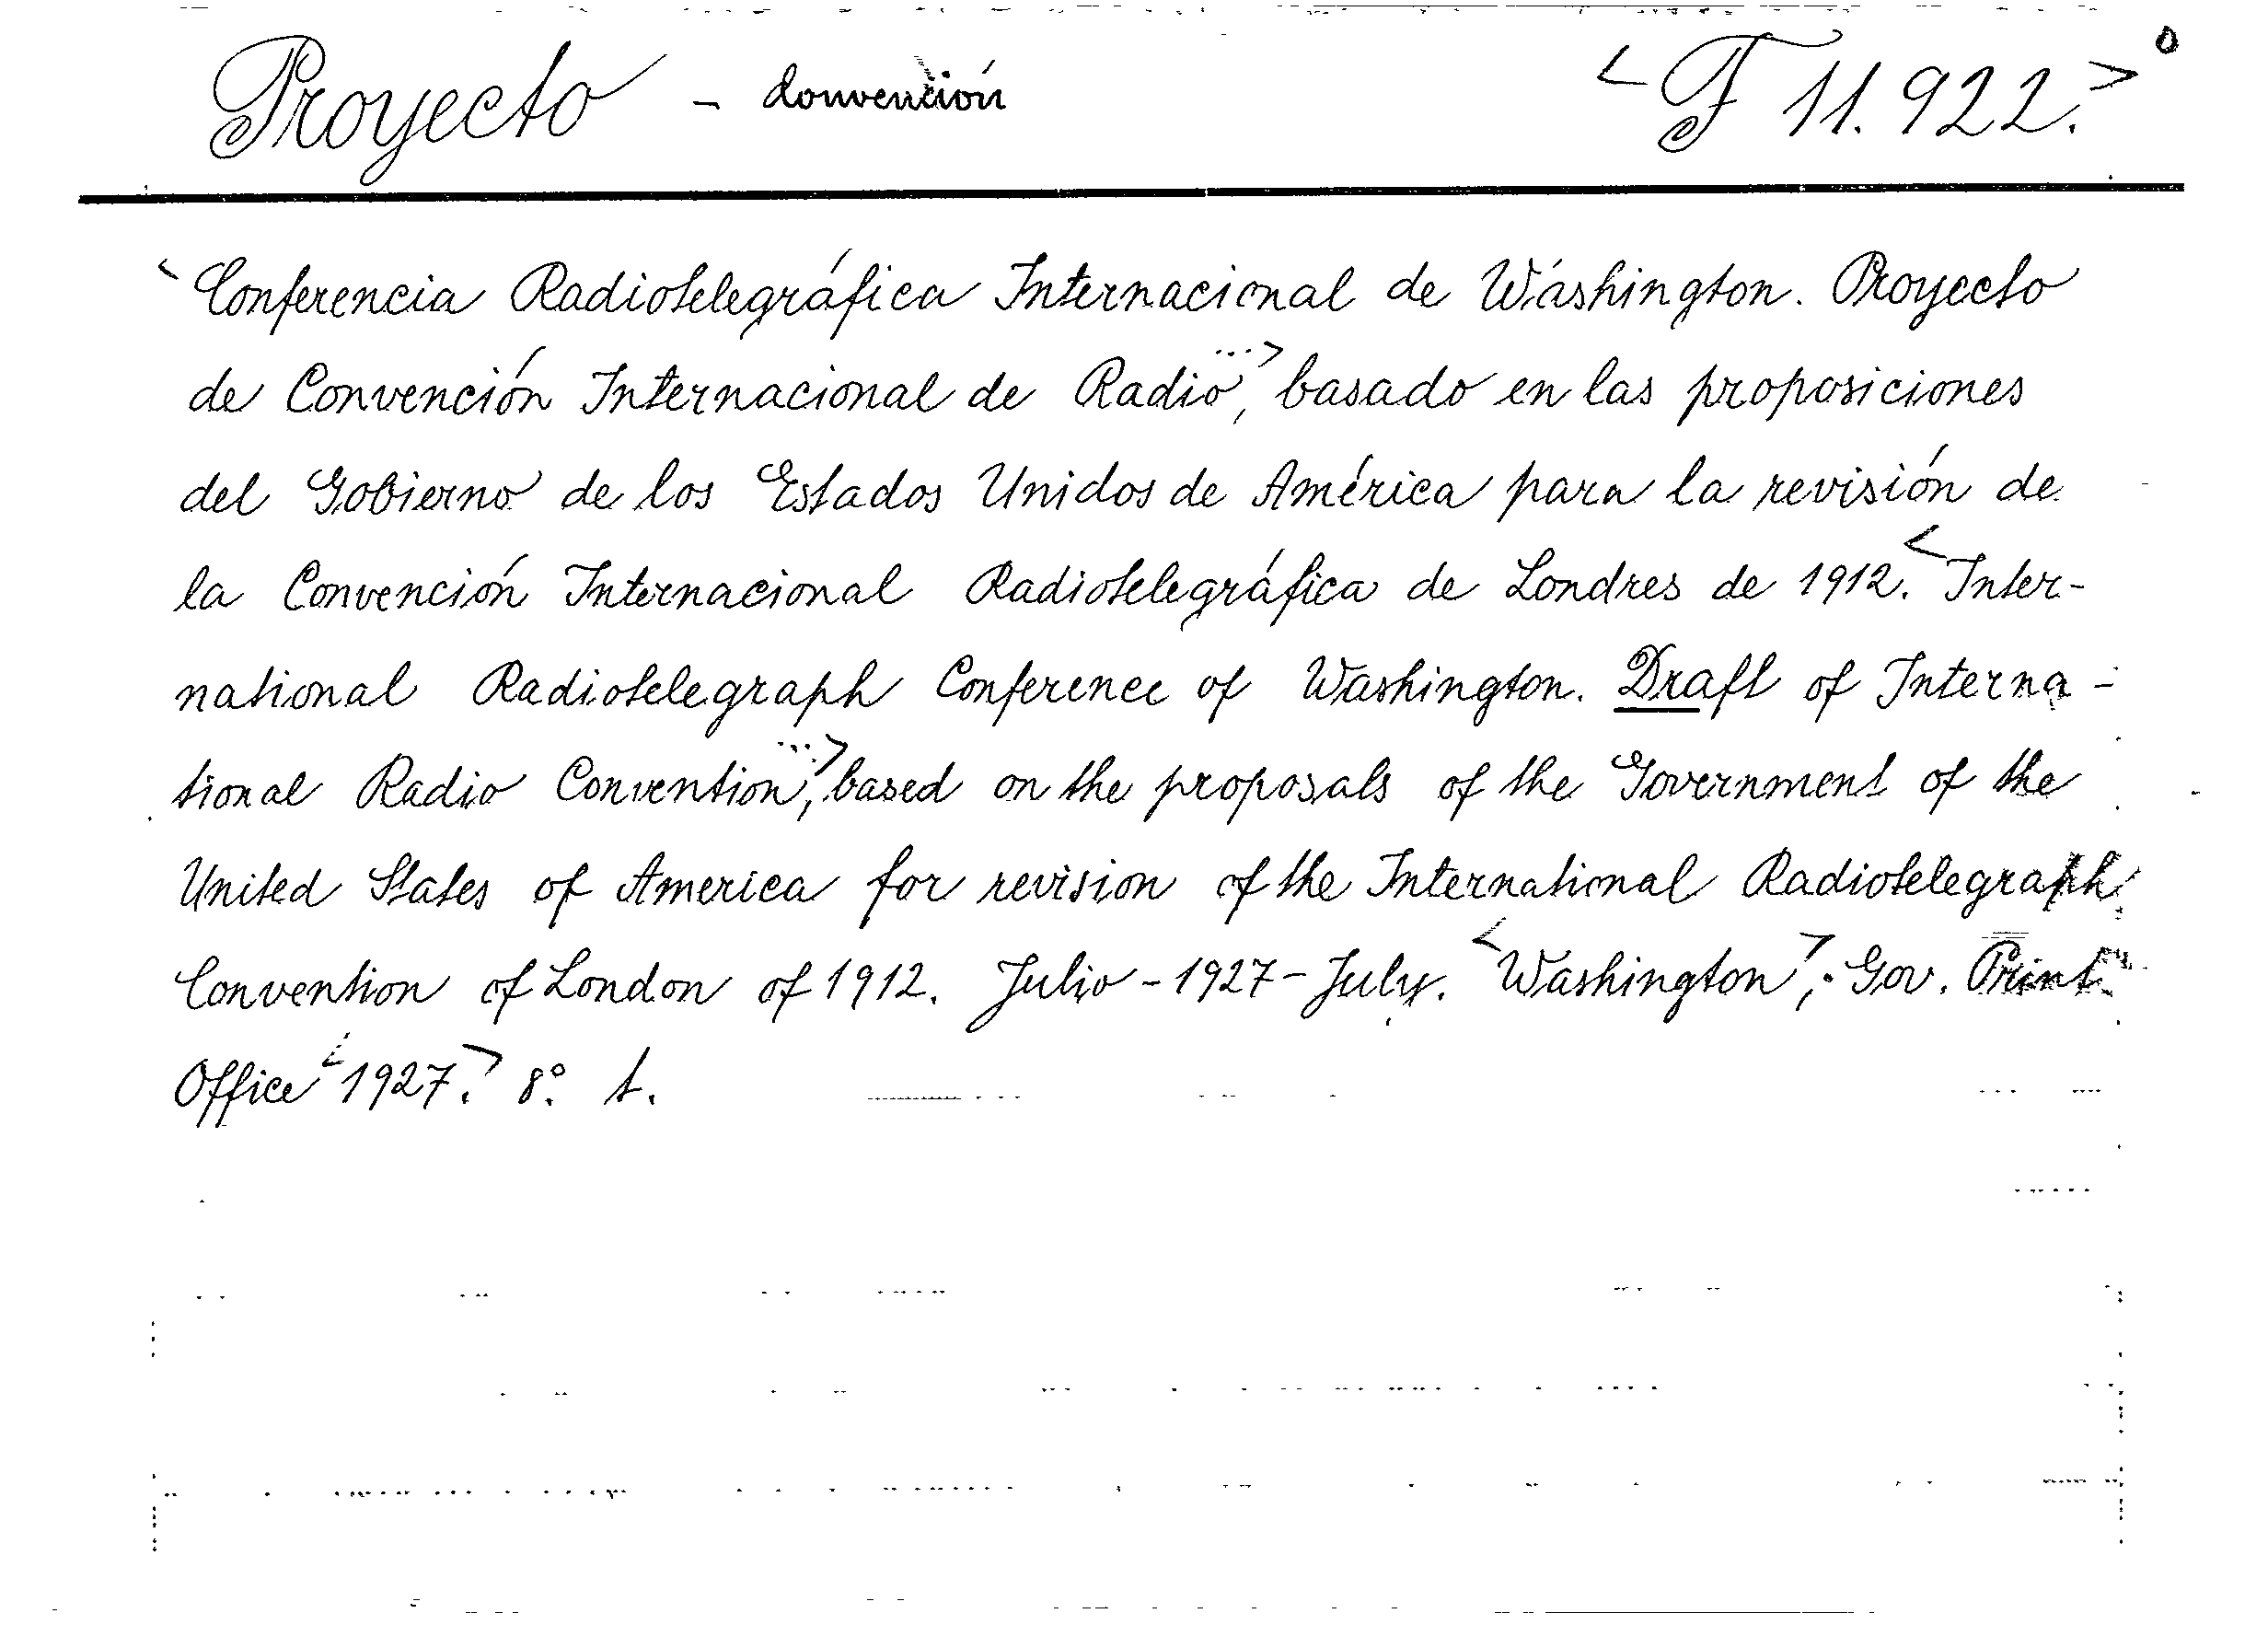 Proyecto - convención <F 11.922.>°
<Conferencia Radiotelegráfica Internacional de Wáshington. Proyecto
de Convención Internacional de Radio, ...> basado en las proposiciones
del Gobierno de los Estados Unidos de América para la revisión de
la Convención Internacional Radiotelegráfica de Londres de 1912. <Inter-
national Radiotelegraph Conference of Washington. Draft of Interna-
tional Radio Convention, ...> based on the proposals of the Government of the
United States of America for revision of the International Radiotelegraph
Convention of London of 1912. Julio-1927-July. <Washington>; Gov. Print.
Office <1927.> 8°. t.